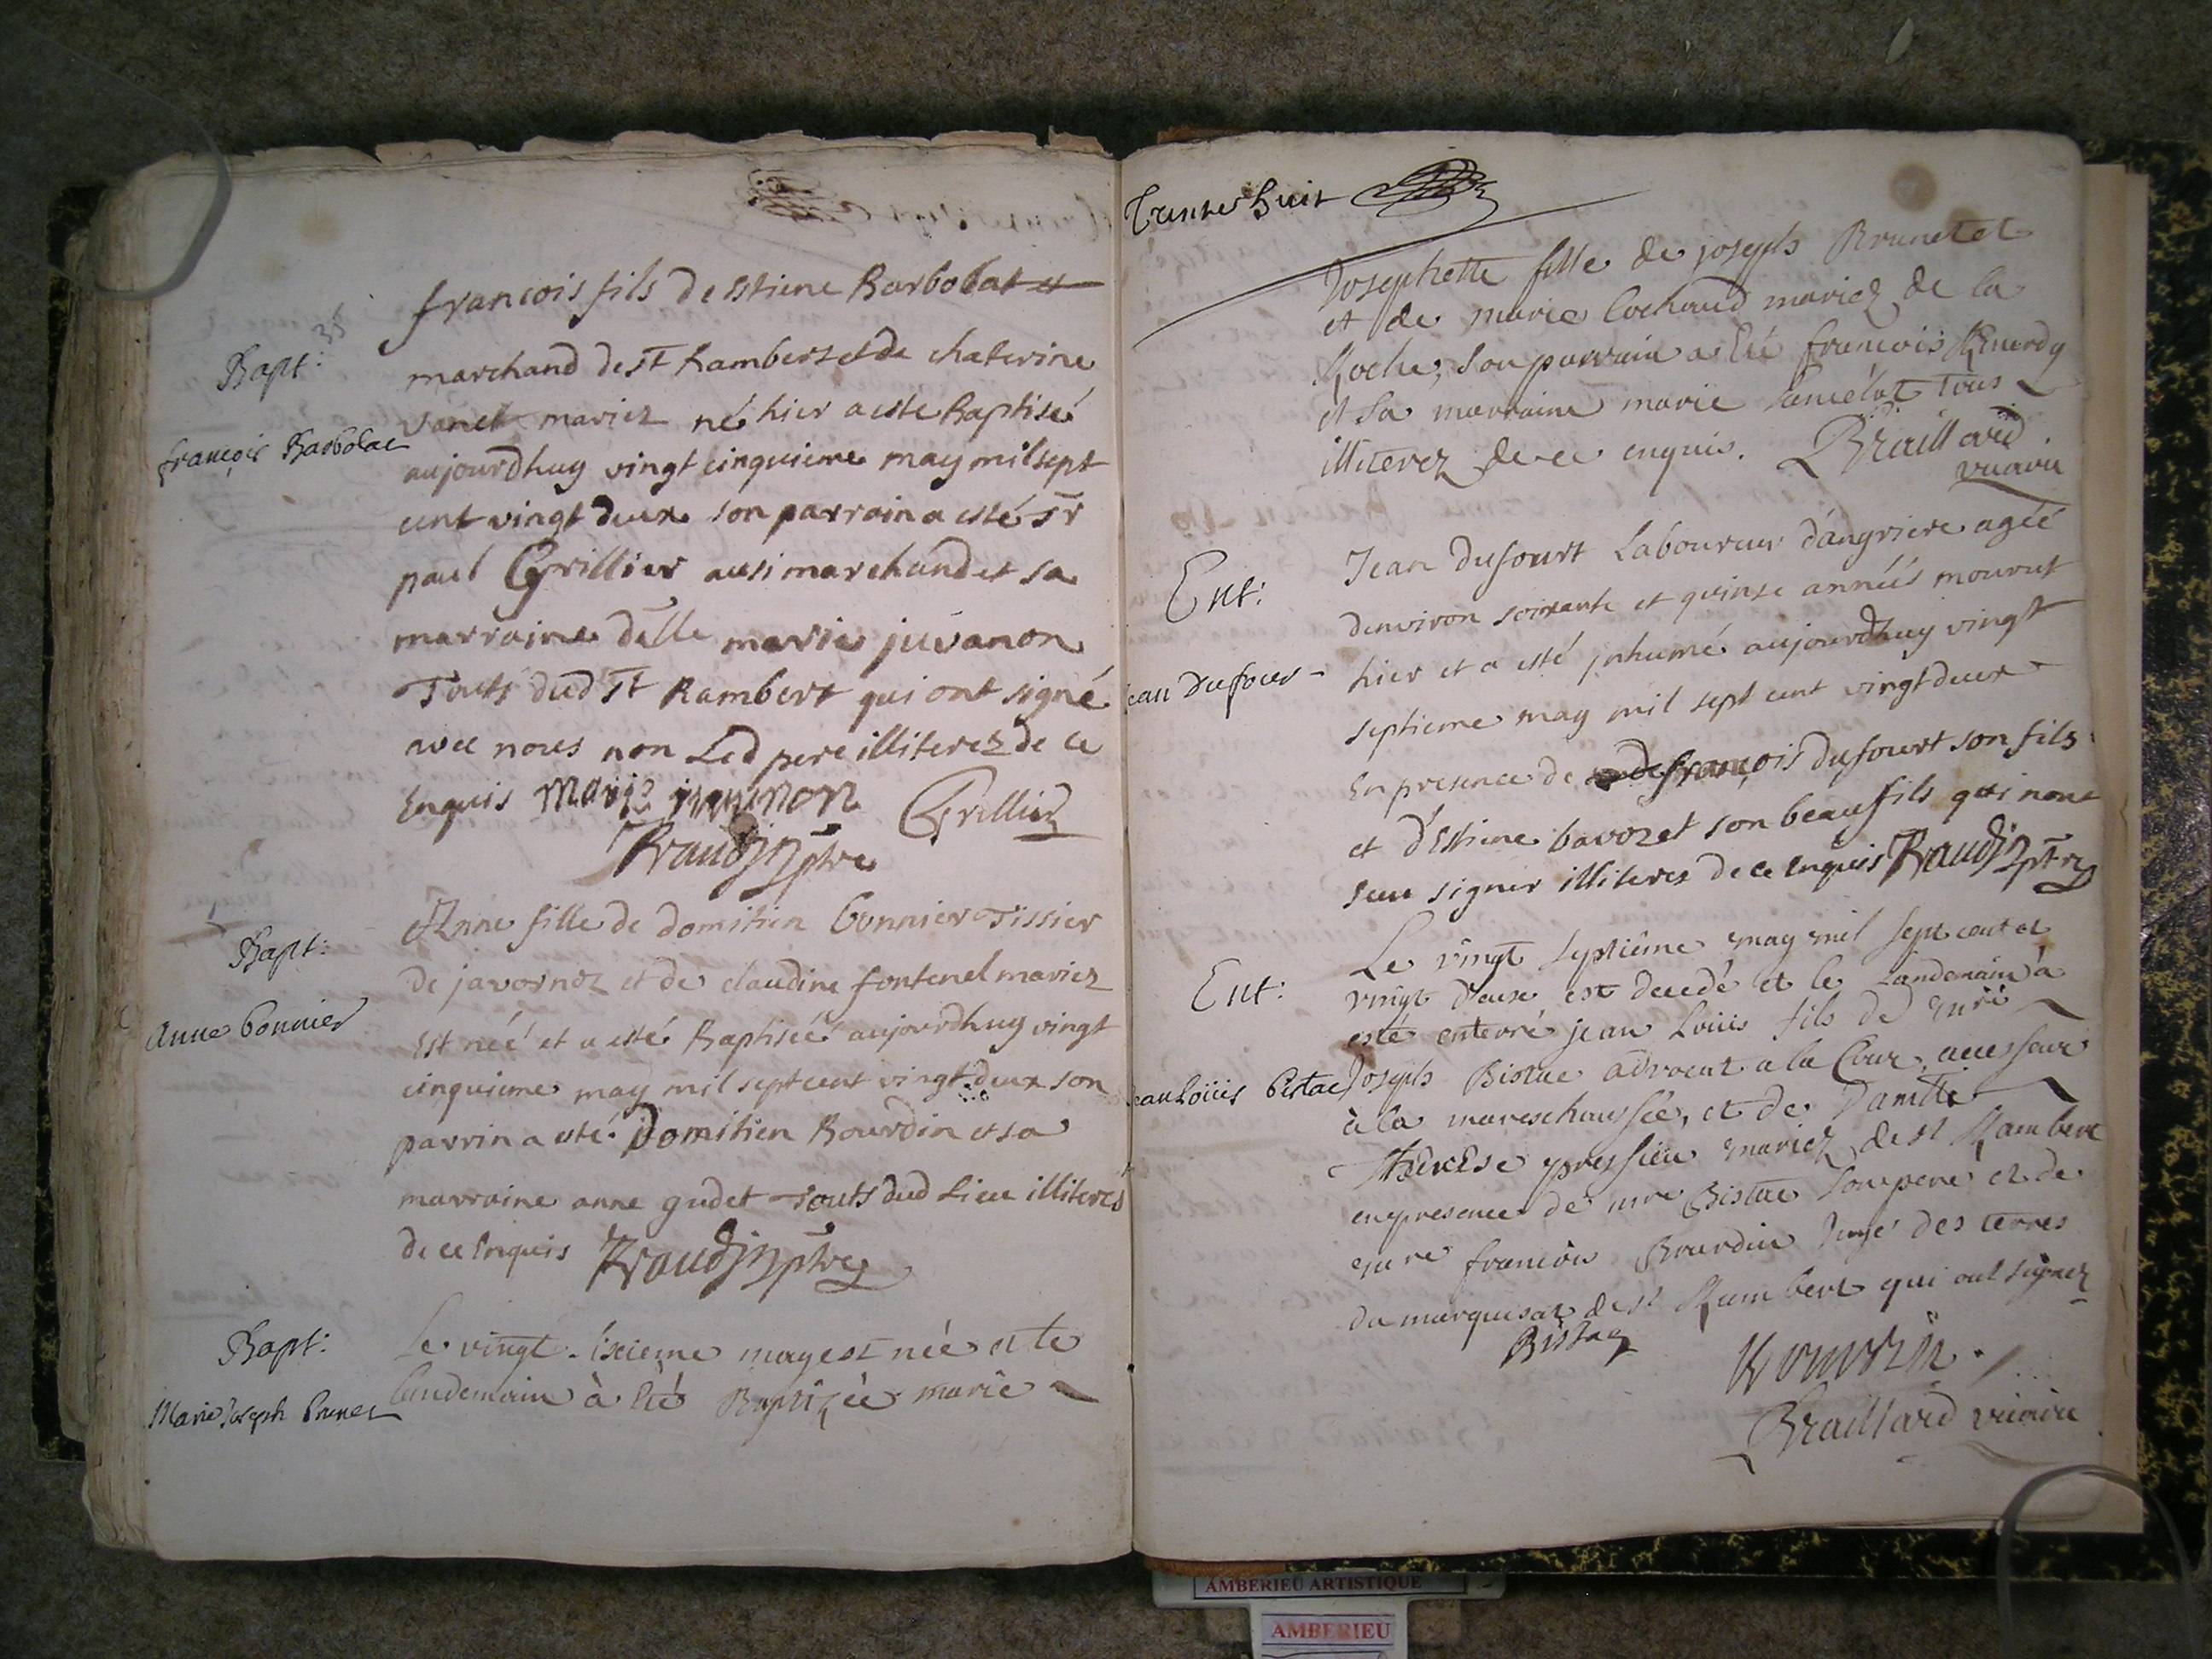 Bapt:
françois Barbolat
francois fils de Estiene Barbolat et
marchand de St Rambert et de chaterine
vanet mariez né hier a esté Baptisé
aujourdhuy vingt cinquieme may mil sept
cent vingt deux son parrain a esté Sr
paul Grillier ausi marchand et sa
marraine delle marie juvanon
Touts dud St Rambert qui ont signé
avec nous non Led pere illiterez de ce
Enquis Marie juvanon Grillier
Braudin ptre
Bapt:
Anne bonnier
Anne fille de domitien bonnier Tissier
de javornoz et de claudine fontenel mariez
est néé et a esté Baptiséé aujourdhuy vingt
cinquieme may mil sept cent vingt deux son
parrin a esté Domitien Bourdin et sa
marraine anne gudet Touts dud Lieu illiterés
de ce Enquis Braudin ptre
Bapt:
Marie Joseph Brunet
Le vingt sixieme may est née et le
landemain à été Baptizée marie
Trente huit
Josephette fille de joseph Brunet et
et de marie Cochaud mariez de la
Roche, son parrain a été francois
et sa marraine marie Lancelot tous
illiterez de ce enquis. Braillard
vicaire
Ent:
Jean Dufour
Jean dufourt Laboureur d'angriere agéé
denviron soixante et quinze années mourut
hier et a esté inhumé aujourdhuy vingt
septieme may mil sept cent vingt deux
En presence de francois dufourt son fils
et d'Estiene bavozet son beaufils qui nont
sceu signer illiteres de ce Enquis Braudin ptre
Ent:
Jean Loüis Bistac
Le vingt septième may mil sept cent et
vingt deux est decedé et le Landemain à
esté enterré jean Loüis fils de mre
Joseph Bistac advocat a la Cour, accesseur
à la mareschaussée, et de Damlle
Thérèse pressieu mariez de st Rambert
en presence de mre Bistac son pere et de
mre francois Bourdin Juge des terres
du marquisat de st Rambert qui ont signez
Bistac Bourdin.
Braillard vicaire
AMBERIEU ARTISTIQUE
AMBERIEU